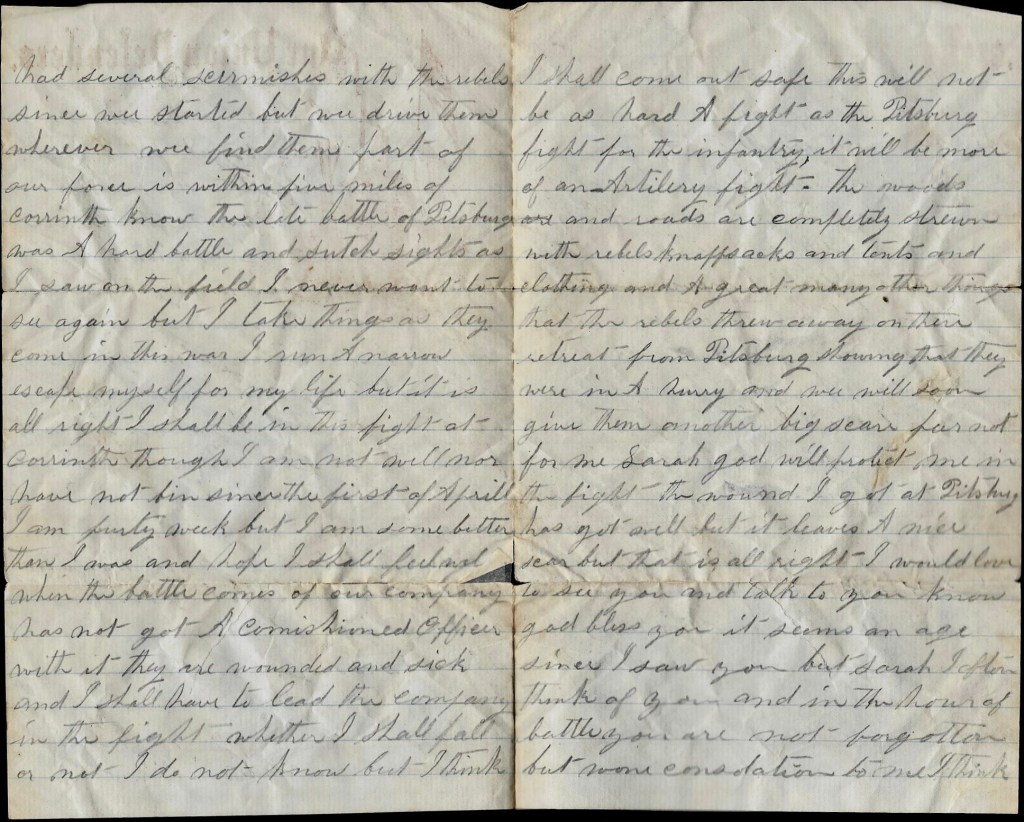 had several scirmishes with the rebels
since wee started but wee drive them
wherever wee find them part of
our force is within five miles of
corrinth know the late battle of Pitsburg
was A hard battle and sutch sights as
I saw on the field I never want to
see again but I take things as they
come in this war I run A narrow
escape myself for my life but it is
all right I shall be in this fight at
Corrinth though I am not well nor
have not bin since the first of Aprill
I am purty week but I am some better
than I was and hope I shall feel wel
when the battle comes of our company
has not got A comishioned Officer
with it they are wounded and sick
and I shall have to lead the company
in the fight whether I shall fall
or not I do not know but I think
I shall come out safe this will not
be as hard A fight as the Pitsburg
fight for the infantry, it will be more
of an Artilery fight - the woods
and roads are completely strewn
with rebels knapsacks and tents and
clothing and A great many other things
that the rebels threw away on there
retreat from Pitsburg showing that they
were in A hurry and wee will soon
give them another big scare fear not
for me Sarah god will protect me in
the fight the wound I got at Pitsburg
has got well but it leaves A nice
scar but that is all right I would love
to see you and talk to you know
god bless you it seems an age
since I saw you but Sarah I often
think of you and in the hour of
battle you are not forgotten
but more consolation to me I think